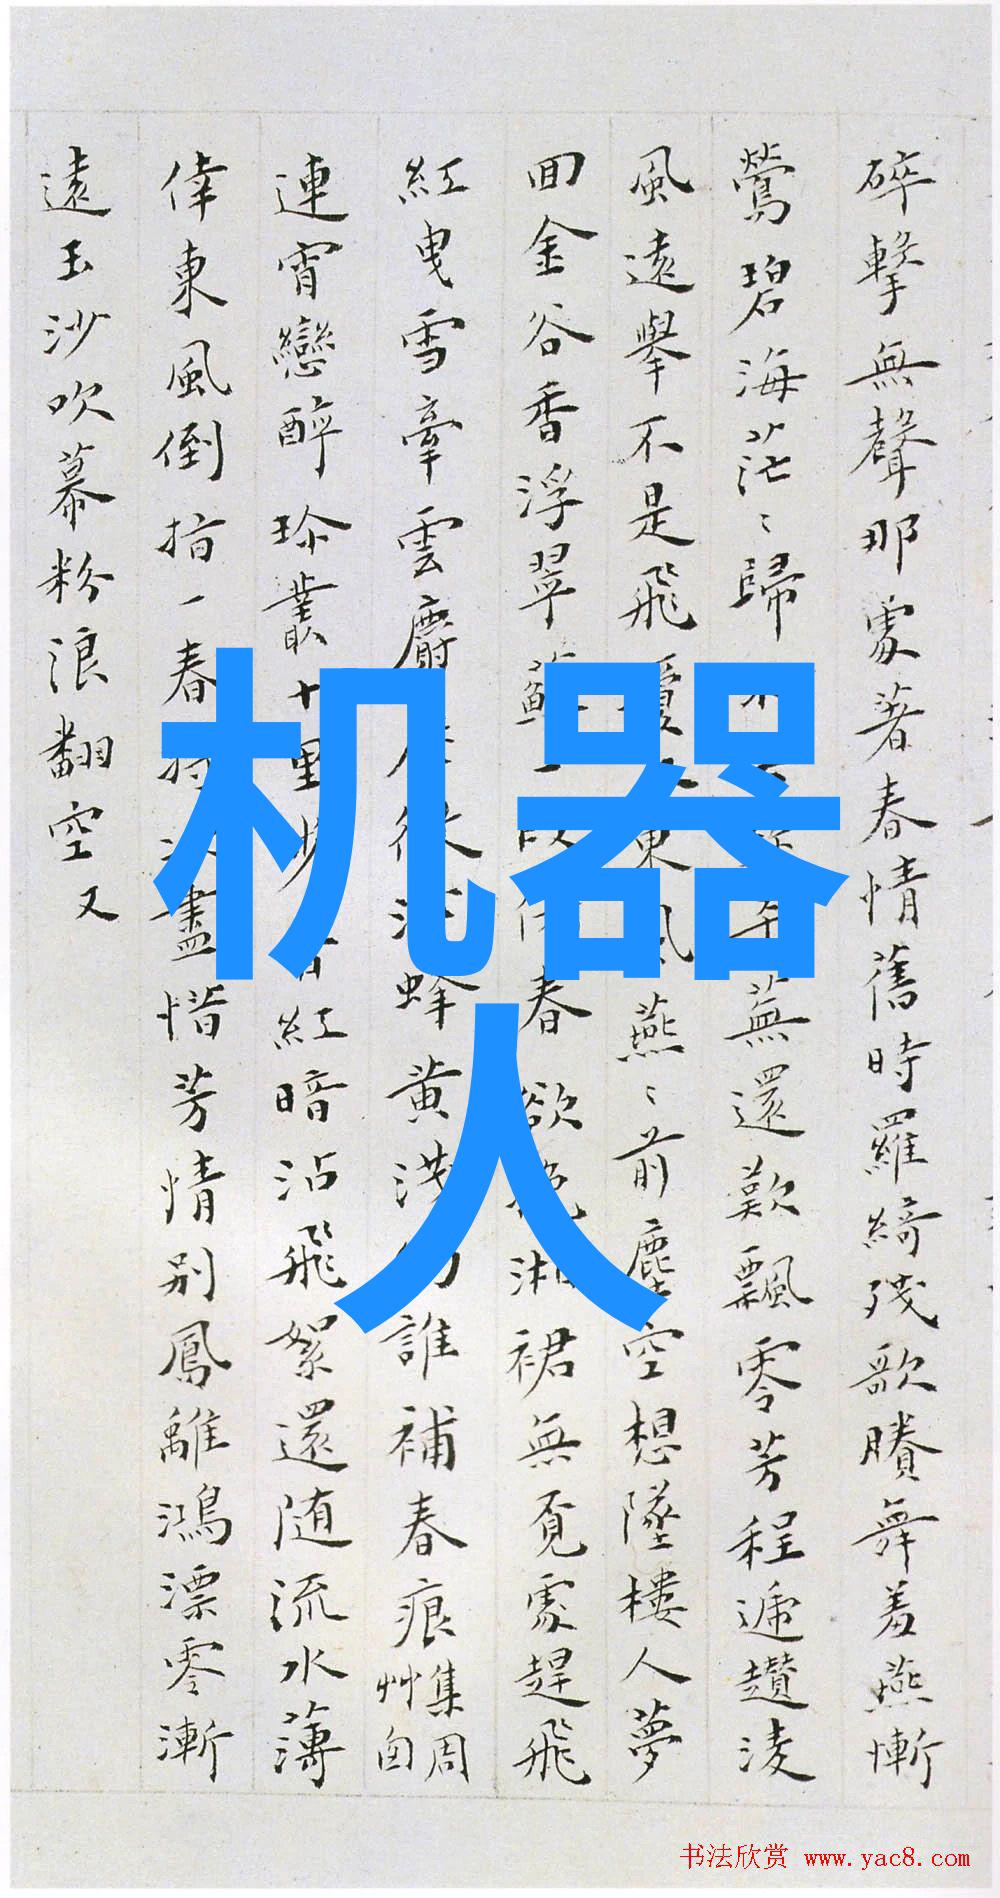 碎擊無聲那處著春情舊時羅綺殘歌賸舞羞燕慚
鶯碧海茫〻歸蕪還歎飄零芳程遞趲淩
風遠舉不是飛東風燕〻前塵空想墜樓人夢
回金谷香浮翠春欲挽湘裙無覓處趕飛
紅曳雪牽雲麝蜂黄淺誰補春痕集周艸囪
連宵戀醉珍叢十里紅暗沾飛絮還随流水薄
倖東風倒指一春將次盡惜芳情别鳳離鴻漂零漸
遠玉沙吹幕粉浪翻空又
机器
人
书法欣赏 www.yac8.com